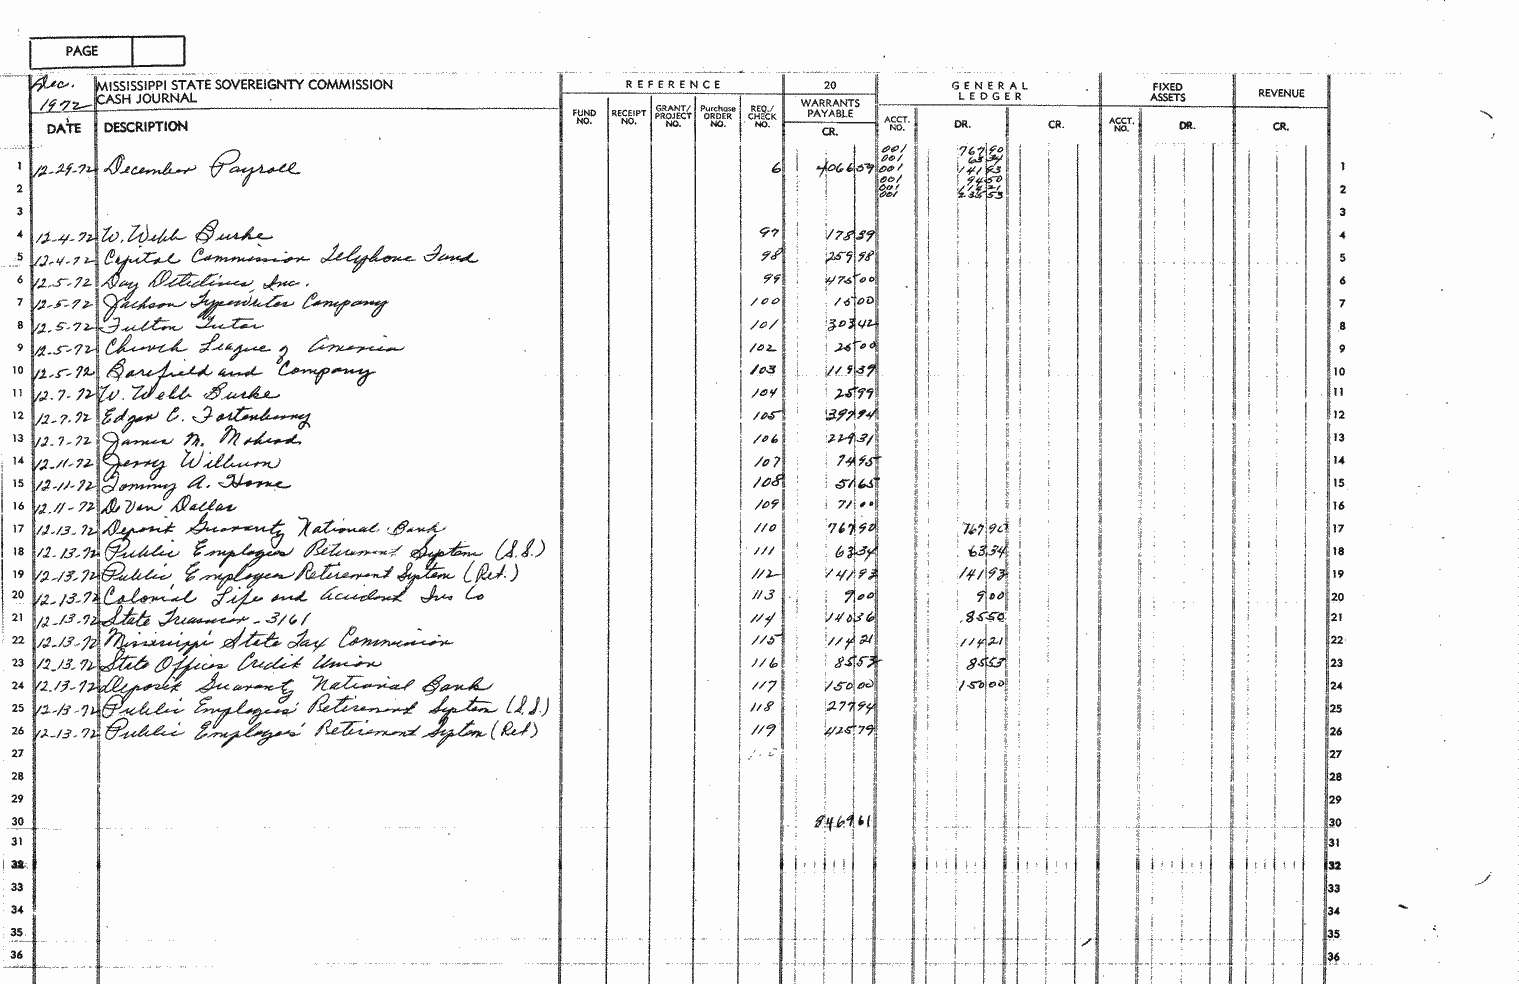 PAGE
Dec. 1972 MISSISSIPPI STATE SOVEREIGNTY COMMISSION REFERENCE 20 GENERAL LEDGER FIXED ASSETS REVENUE
CASH JOURNAL
DATE DESCRIPTION FUND NO. RECEIPT NO. GRANT/PROJECT NO. Purchase ORDER NO. REQ./CHECK NO. WARRANTS PAYABLE CR. ACCT. NO. DR. CR. ACCT. NO. DR. CR.
001 767 90
001 63 34
1 12-29-72 December Payroll 6 4066 59 001 141 93 1
001 94 50
2 001 114 21 2
001 235 53
3 3
4 12-4-72 W. Webb Burke 97 178 39 4
5 12-4-72 Capitol Commission Telephone Fund 98 259 98 5
6 12-5-72 Day Detectives, Inc. 99 475 00 6
7 12-5-72 Jackson Typewriter Company 100 15 00 7
8 12-5-72 Fulton Tutor 101 303 42 8
9 12-5-72 Church League of America 102 25 00 9
10 12-5-72 Barefield and Company 103 119 39 10
11 12-7-72 W. Webb Burke 104 25 99 11
12 12-7-72 Edgar C. Fortenberry 105 397 94 12
13 12-7-72 James M. Mohead 106 229 31 13
14 12-11-72 Jerry Wilburn 107 74 95 14
15 12-11-72 Tommy A. Horne 108 51 65 15
16 12-11-72 DeVan Dallas 109 71 00 16
17 12-13-72 Deposit Guaranty National Bank 110 767 90 767 90 17
18 12-13-72 Public Employees Retirement System (S.S.) 111 63 34 63 34 18
19 12-13-72 Public Employees Retirement System (Ret.) 112 141 93 141 93 19
20 12-13-72 Colonial Life and Accident Ins Co 113 9 00 9 00 20
21 12-13-72 State Treasurer - 3161 114 140 36 85 50 21
22 12-13-72 Mississippi State Tax Commission 115 114 21 114 21 22
23 12-13-72 State Offices Credit Union 116 85 53 85 53 23
24 12-13-72 Deposit Guaranty National Bank 117 150 00 150 00 24
25 12-13-72 Public Employees' Retirement System (S.S.) 118 277 94 25
26 12-13-72 Public Employees' Retirement System (Ret) 119 425 79 26
27 27
28 28
29 29
30 8469 61 30
31 31
32 32
33 33
34 34
35 35
36 36